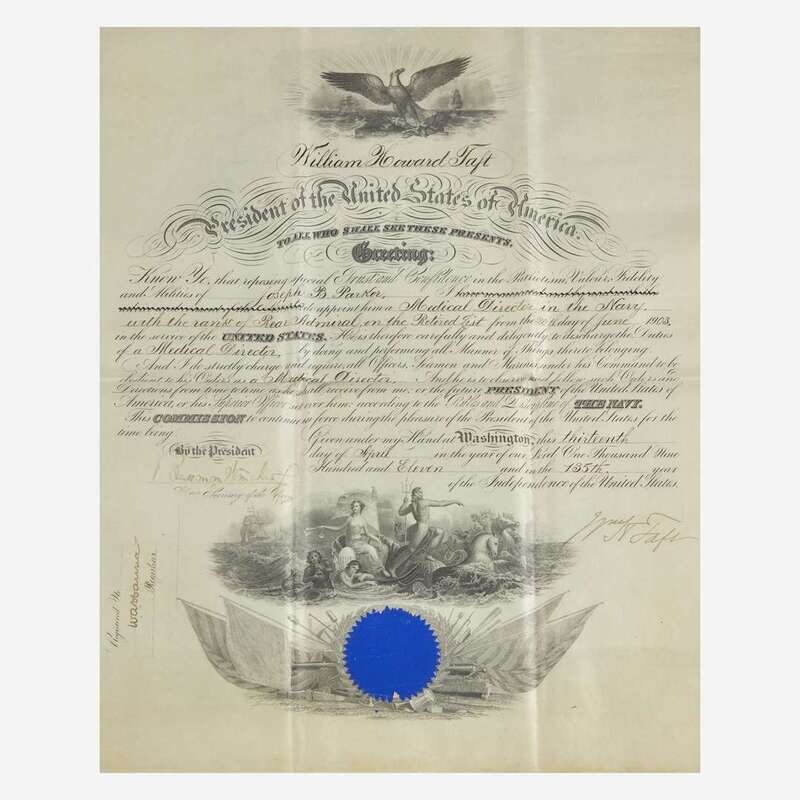 William Howard Taft
President of the United States of America.
TO ALL WHO SHALL SEE THESE PRESENTS,
Greeting:
Know Ye, that reposing special Trust and Confidence in the Patriotism, Valour, Fidelity
and Abilities of Joseph B Parker, I
appoint him a Medical Director in the Navy,
with the rank of Rear Admiral on the Retired List from the day of June, 1905,
in the service of the UNITED STATES. He is therefore carefully and diligently to discharge the Duties
of a Medical Director, by doing and performing all Manner of Things thereto belonging.
And I do strictly charge and require all Officers, Seamen and Marines under his Command to be
obedient to his Orders as a Medical Director. And he is to observe and follow such Orders and
Directions from time to time as he shall receive from me, or the future PRESIDENT of the United States of
America, or his Superior Officer set over him, according to the Rules and Discipline of THE NAVY.
This COMMISSION to continue in force during the pleasure of the President of the United States for the
time being.
Given under my Hand at Washington, this thirteenth
By the President
day of April in the year of our Lord One Thousand Nine
Hundred and Eleven and in the 135th year
of the Independence of the United States.
Secretary of the Navy
Wm H Taft
Registered No
Register